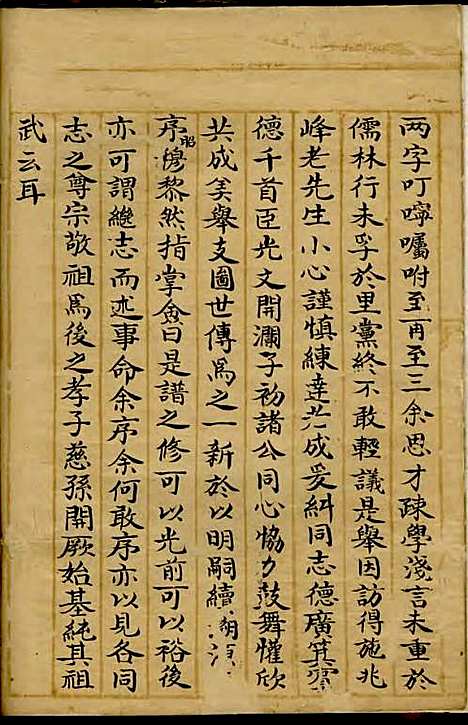 两字叮嚀囑咐至再至三余思才疎學淺言未重於
儒林行未孚於里黨終不敢輕議是舉因訪得施兆
峰老先生小心謹慎練達老成爰糾同志德廣箕
德千首臣光文開瀾子初諸公同心恊力鼓舞懽欣
共成美舉支圖世傳爲之一新於以明嗣續溯源
序昭穆黎然指掌僉曰是譜之修可以光前可以裕後
亦可謂繼志而述事命余序余何敢序亦以見各同
志之尊宗敬祖爲後之孝子慈孫開厥始基純其祖
武云耳